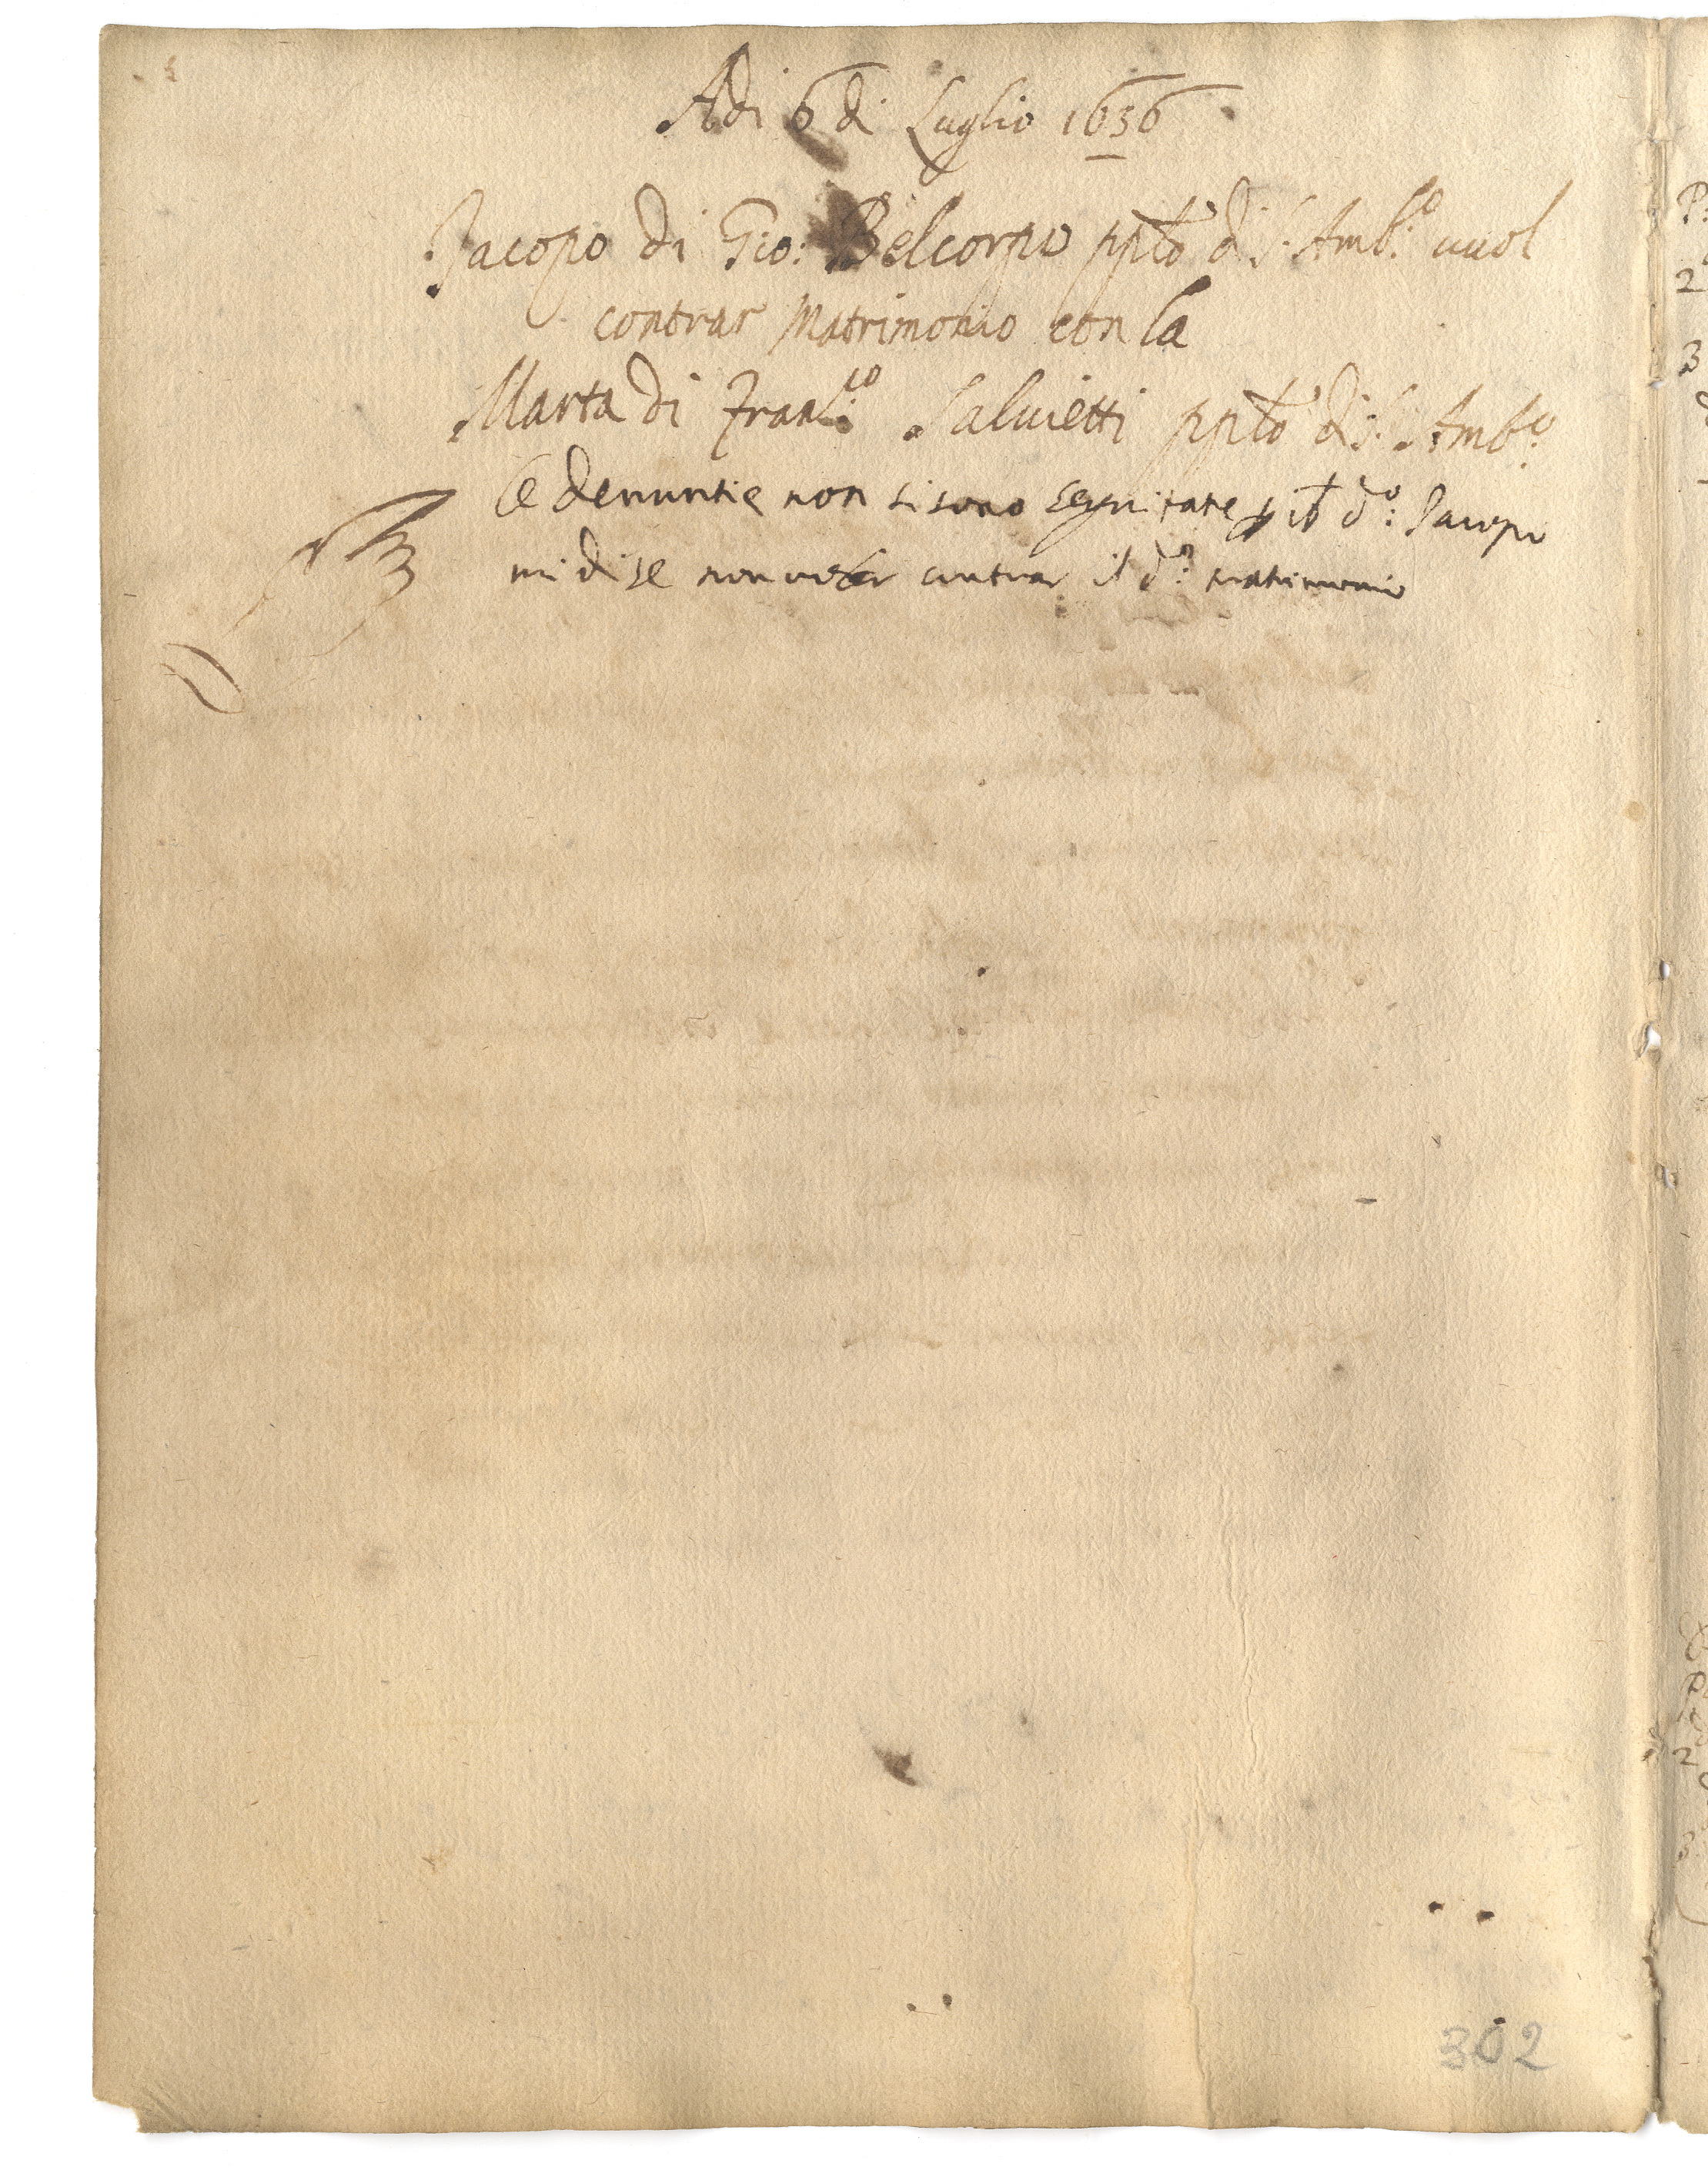 Adi 6 di Luglio 1636
Jacopo di Gio: Belcorpo pplo di S. Amb:o vuol
contrar Matrimonio con la
Marta di Franc:o Salvietti pplo di S. Amb:o
le denuntie non si sono seguitate p il d:o Jacopo
mi dise non voler contrar il d:o matrimonio
302